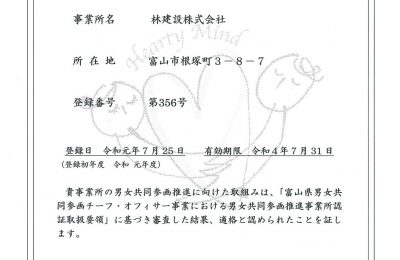 事業所名 林建設株式会社
Hearty Mind
所在地 富山市根塚町3-8-7
登録番号 第356号
登録日 令和元年7月25日 有効期限 令和4年7月31日
(登録初年度 令和 元年度)
貴事業所の男女共同参画推進に向けた取組みは、「富山県男女共
同参画チーフ・オフィサー事業における男女共同参画推進事業所認
証取扱要領」に基づき審査した結果、適格と認められたことを証し
ます。